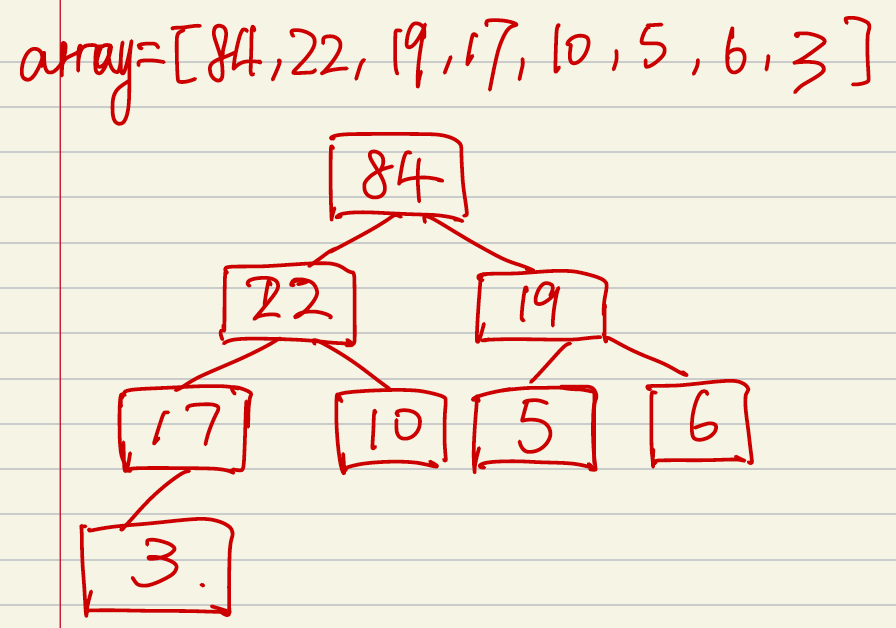 array=[84,22,19,17,10,5,6,3]
84
22 19
17 10 5 6
3.